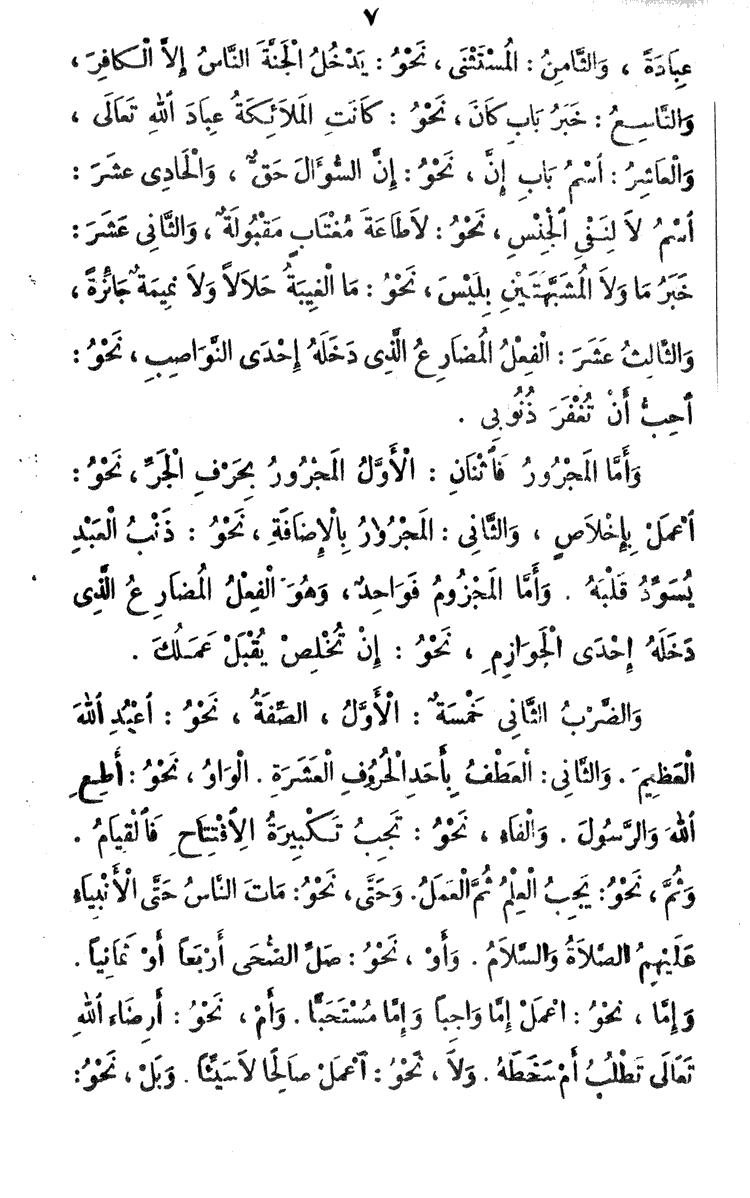 ٧
عِبَادَةً ، وَالثَّامِنُ : الْمُسْتَثْنَى ، نَحْوُ : يَدْخُلُ الْجَنَّةَ النَّاسُ إِلاَّ الْكَافِرَ ،
وَالتَّاسِعُ : خَبَرُ بَابِ كَانَ ، نَحْوُ : كَانَتِ الْمَلاَئِكَةُ عِبَادَ اللهِ تَعَالَى ،
وَالْعَاشِرُ : اَسْمُ بَابِ إِنَّ ، نَحْوُ : إِنَّ السُّؤَالَ حَقٌّ ، وَالْحَادِى عَشَرَ :
اَسْمُ لاَ لِنَفْىِ الْجِنْسِ ، نَحْوُ : لاَطَاعَةَ مُغْتَابٍ مَقْبُولَةٌ ، وَالثَّانِى عَشَرَ :
خَبَرُ مَا وَلاَ الْمُشَبَّهَتَيْنِ بِلَيْسَ ، نَحْوُ : مَا الْغِيبَةُ حَلاَلاً وَلاَ نَمِيمَةٌ جَائِزَةً ،
وَالثَّالِثُ عَشَرَ : الْفِعْلُ الْمُضَارِعُ الَّذِى دَخَلَهُ إِحْدَى النَّوَاصِبِ ، نَحْوُ :
اُحِبُّ أَنْ تُغْفَرَ ذُنُوبِى .
وَأَمَّا الْمَجْرُورُ فَاَثْنَانِ : الْأَوَّلُ الْمَجْرُورُ بِحَرْفِ الْجَرِّ ، نَحْوُ :
اَعْمَلْ بِإِخْلاَصٍ ، وَالثَّانِى : الْمَجْرُوْرُ بِالْإِضَافَةِ ، نَحْوُ : ذَنْبُ الْعَبْدِ
يُسَوِّدُ قَلْبَهُ . وَأَمَّا الْمَجْزُومُ فَوَاحِدٌ ، وَهُوَ الْفِعْلُ الْمُضَارِعُ الَّذِى
دَخَلَهُ إِحْدَى الْجَوَازِمِ ، نَحْوُ : إِنْ تُخْلِصْ يُقْبَلْ عَمَلُكَ .
وَالضَّرْبُ الثَّانِى خَمْسَةٌ : الْأَوَّلُ ، الصِّفَةُ ، نَحْوُ : اَعْبُدِ اللهَ
الْعَظِيمَ . وَالثَّانِى : الْعَطْفُ بِأَحَدِ الْحُرُوفِ الْعَشَرَةِ . الْوَاوُ ، نَحْوُ : أَطِعِ
اللهَ وَالرَّسُولَ . وَالْفَاءِ ، نَحْوُ : تَجِبُ تَكْبِيرَةُ الاِفْتِتَاحِ فَالْقِيَامُ .
وَثُمَّ ، نَحْوُ : يَجِبُ الْعِلْمُ ثُمَّ الْعَمَلُ . وَحَتَّى ، نَحْوُ : مَاتَ النَّاسُ حَتَّى الْأَنْبِيَاءِ
عَلَيْهِمُ الصَّلاَةُ وَالسَّلاَمُ . وَأَوْ ، نَحْوُ : صَلِّ الضُّحَى أَرْبَعاً أَوْ ثَمَانِياً .
وَإِمَّا ، نَحْوُ : اعْمَلْ إِمَّا وَاجِباً وَإِمَّا مُسْتَحَبًّا . وَأَمْ ، نَحْوُ : أَرِضَاءَ اللهِ
تَعَالَى تَطْلُبُ أَمْ سَخَطَهُ . وَلاَ ، نَحْوُ : اَعْمَلْ صَالِحًا لاَسَيِّئًا . وَبَلْ ، نَحْوُ :